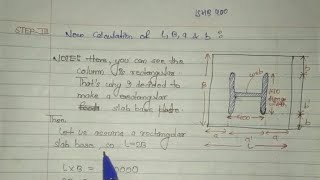 ISMB 400
STEP-III Now calculation of L, B, a & b :-
NOTE:- Here, you can see the
column is rectangular.
That's why I decided to
make a rectangular
slab base plate.
Then
Let us assume a rectangular
slab base, so L=2B
L×B =
B
400
a
a
L
b